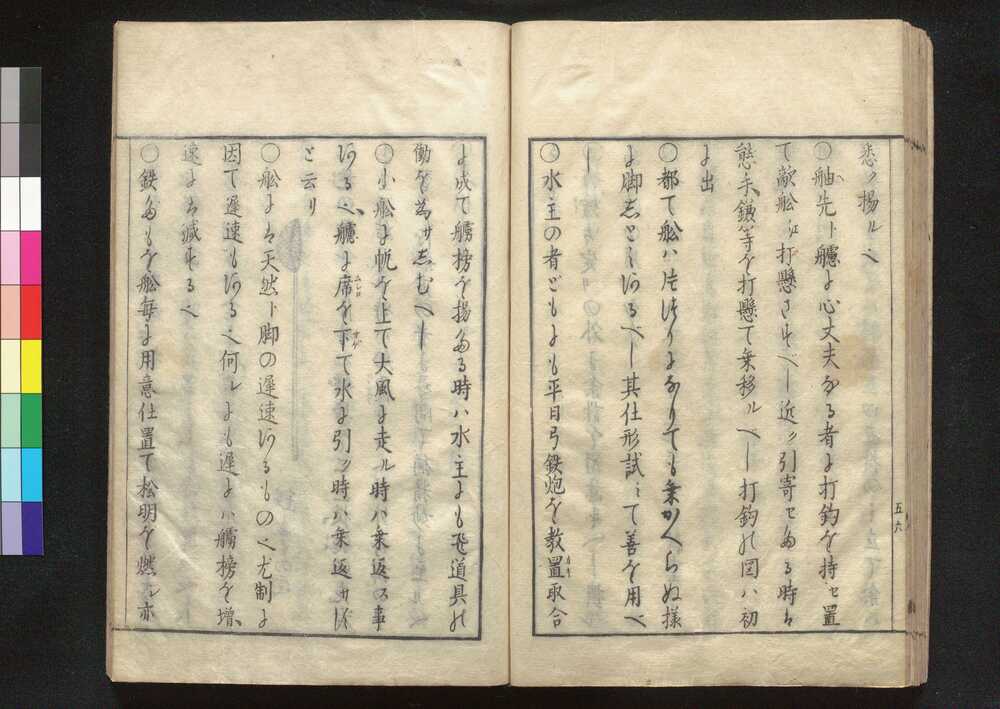 悉ク揚ルベ
○舳先ト艫ニ心丈夫なる者に打鈎を持セ置
て敵船江打懸さすべし近ク引寄せたる時は
熊手鎌等を打懸て乗移ルベし打鈎の図ハ初
に出
○都て船ハ片ゆりになりても乗かへらぬ様
に脚しといるべし其仕形試ミて善を用べ
○水主の者どもにも平日弓鉄炮を教置取合
に成て艪榜を揚たる時ハ水主にも飛道具の
働を為サしむへし
○小船に帆を上て大風に走ル時ハ乗返ス事
ある艫に席を下て水に引ク時ハ乗返サず
と云り
○船には天然ト脚の遅速あるものべ尤制に
因て遅速もあるべ何レにも遅に艪榜を増
速には減ずるべ
○鉄を船毎に用意仕置て松明を燃シ亦
五六